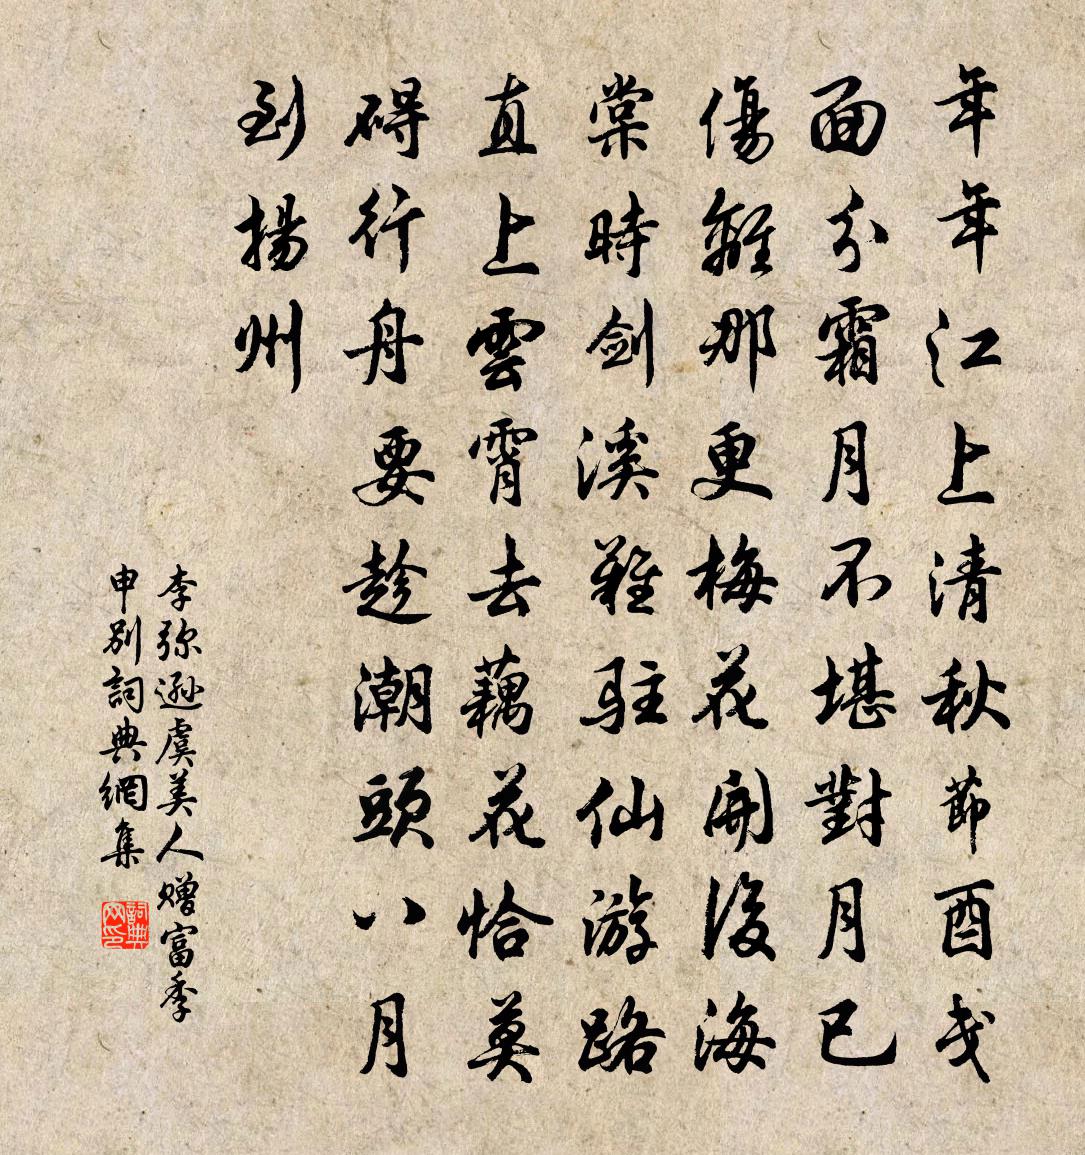 年年江上清秋節酉戋
面分霜月不堪對月已
傷離那更梅花開後海
棠時劍溪難駐仙游路
直上雲霄去藕花恰莫
碍行舟要趁潮頭八月
到揚州
李弥遜虞美人赠富季
申别詞典網集
詞典
网印